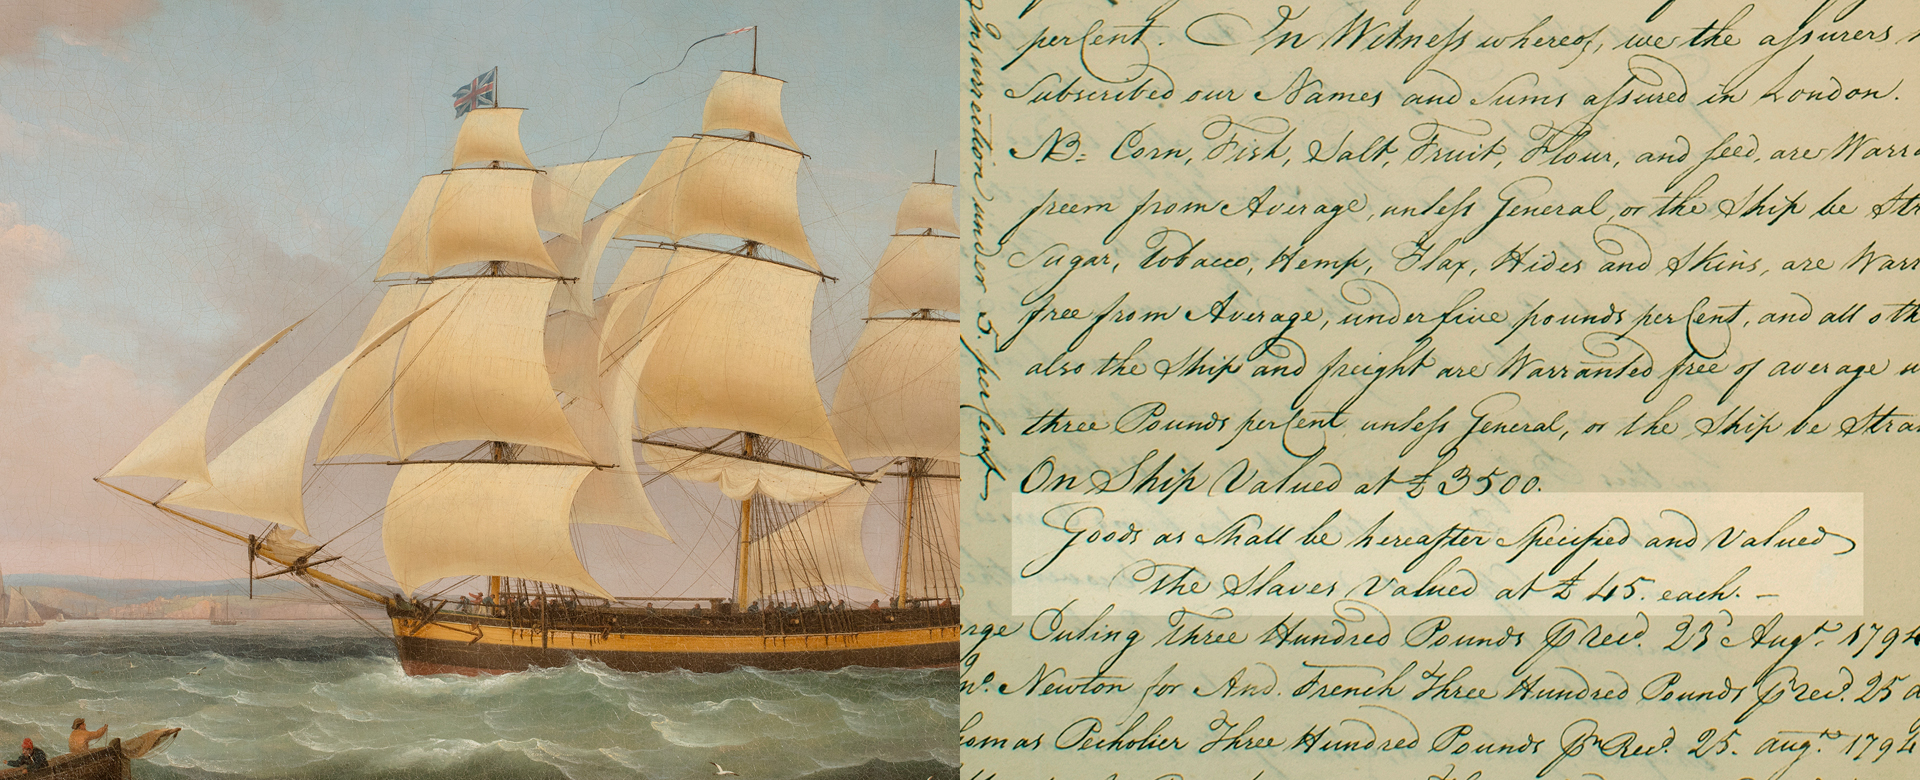 perCent. In Witness whereof, we the assurers
Subscribed our Names and Sums assured in London.
NB= Corn, Fish, Salt, Fruit, Flour, and seed, are Warra
freem from Average, unless General, or the Ship be Str
Sugar, Tobacco, Hemp, Flax, Hides and Skins, are Warr
free from Average, under five pounds perCent, and all oth
also the Ship and freight are Warranted free of average u
three Pounds perCent unless General, or the Ship be Stra
On Ship Valued at £3500.
Goods as Shall be hereafter Specified and Valued
The Slaves Valued at £45. each. –
rge Curling Three Hundred Pounds Pr recd. 23 Augt. 1794
Newton for And. French Three Hundred Pounds Pr recd. 25
homas Three Hundred Pounds Pr Recd. 25. augt. 1794
Insurrection under 5. perCent